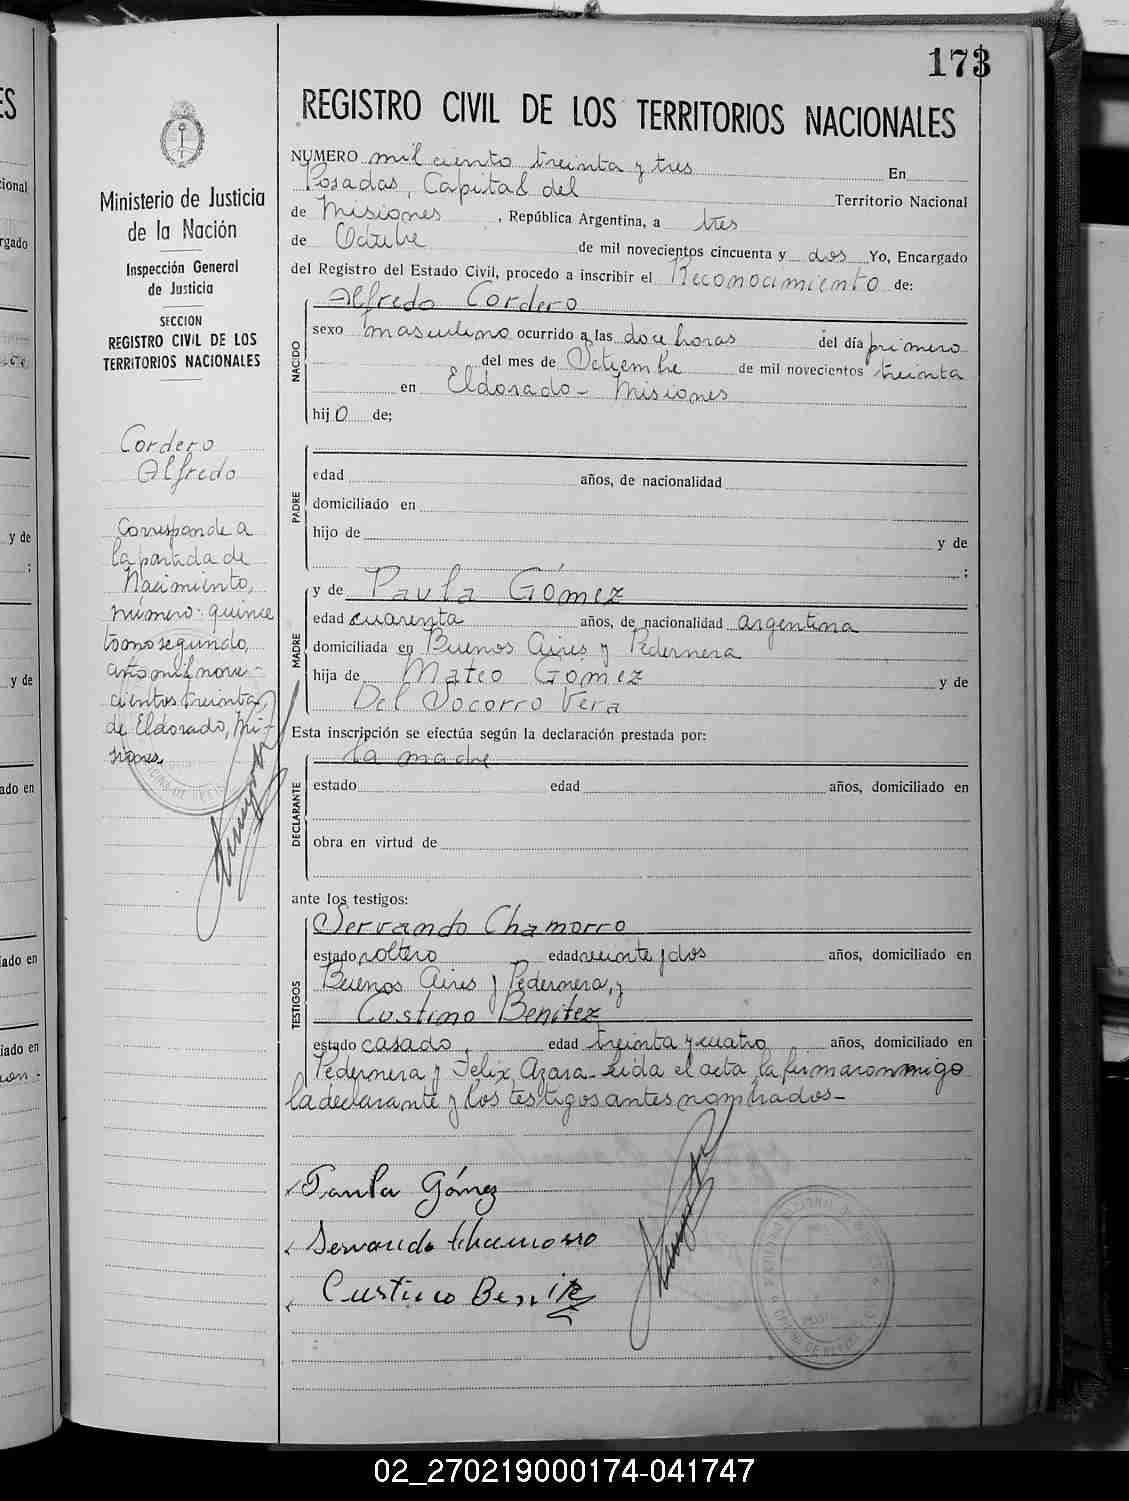 173
REGISTRO CIVIL DE LOS TERRITORIOS NACIONALES
NUMERO mil ciento treinta y tres En
Posadas, Capital del Territorio Nacional
de Misiones, República Argentina, a tres
de Octubre de mil novecientos cincuenta y dos Yo, Encargado
del Registro del Estado Civil, procedo a inscribir el Reconocimiento de:
Alfredo Cordero
NACIDO
sexo masculino ocurrido a las doce horas del día primero
del mes de de mil novecientos treinta
en Eldorado - Misiones
hijo de;
PADRE
edad años, de nacionalidad
domiciliado en
hijo de y de
;
MADRE
y de Paula Gómez
edad cuarenta años, de nacionalidad argentina
domiciliada en Buenos Aires y Pedernera
hija de Mateo Gómez y de
Del Socorro Vera
Esta inscripción se efectúa según la declaración prestada por:
la madre
DECLARANTE
estado edad años, domiciliado en
obra en virtud de
ante los testigos:
Servando Chamorro
TESTIGOS
estado soltero edad veinte y dos años, domiciliado en
Buenos Aires y Pedernera, y
Custino Benitez
estado casado, edad treinta y cuatro años, domiciliado en
Pedernera y Felix Azara - Leida el acta la firmaron migo
la declarante y los testigos antes nombrados -
Paula Gómez
Servando Chamorro
Custino Benitez
Ministerio de Justicia
de la Nación
Inspección General
de Justicia
SECCION
REGISTRO CIVIL DE LOS
TERRITORIOS NACIONALES
Cordero
Alfredo
Corresponde a
la partida de
Nacimiento,
número quince
tomo segundo,
año mil nove-
cientos treinta,
de Eldorado, Mi-
siones.
ES
cional
rgado
y de
;
y de
ado en
iado en
iado en
02_270219000174-041747